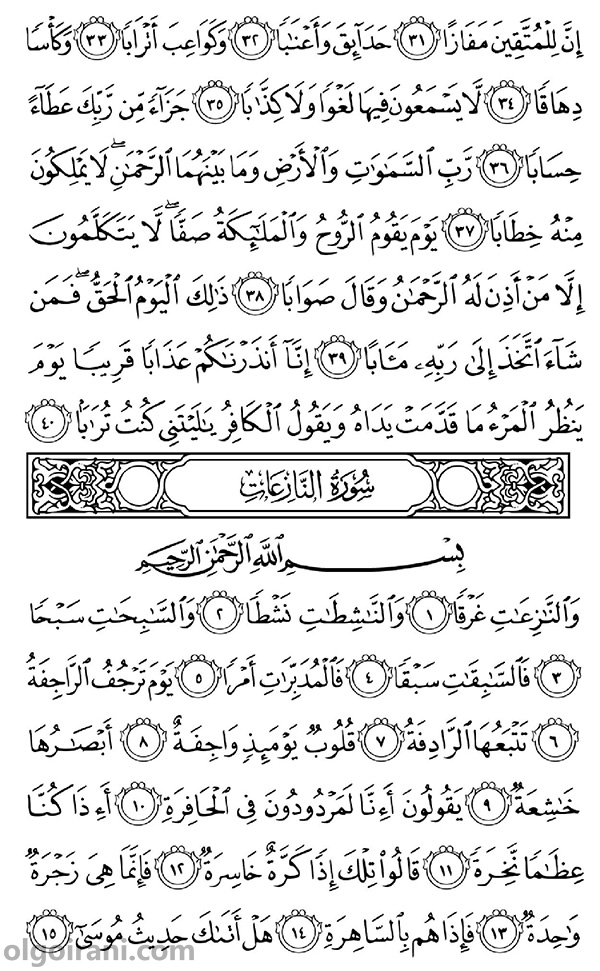 إِنَّ لِلْمُتَّقِينَ مَفَازًا ٣١ حَدَآئِقَ وَأَعْنَٰبًا ٣٢ وَكَوَاعِبَ أَتْرَابًا ٣٣ وَكَأْسًا
دِهَاقًا ٣٤ لَّا يَسْمَعُونَ فِيهَا لَغْوًا وَلَا كِذَّٰبًا ٣٥ جَزَآءً مِّن رَّبِّكَ عَطَآءً
حِسَابًا ٣٦ رَّبِّ السَّمَٰوَٰتِ وَالْأَرْضِ وَمَا بَيْنَهُمَا الرَّحْمَٰنِ ۖ لَا يَمْلِكُونَ
مِنْهُ خِطَابًا ٣٧ يَوْمَ يَقُومُ الرُّوحُ وَالْمَلَٰٓئِكَةُ صَفًّا ۖ لَّا يَتَكَلَّمُونَ
إِلَّا مَنْ أَذِنَ لَهُ الرَّحْمَٰنُ وَقَالَ صَوَابًا ٣٨ ذَٰلِكَ الْيَوْمُ الْحَقُّ ۖ فَمَن
شَآءَ اتَّخَذَ إِلَىٰ رَبِّهِۦ مَـَٔابًا ٣٩ إِنَّآ أَنذَرْنَٰكُمْ عَذَابًا قَرِيبًا يَوْمَ
يَنظُرُ الْمَرْءُ مَا قَدَّمَتْ يَدَاهُ وَيَقُولُ الْكَافِرُ يَٰلَيْتَنِى كُنتُ تُرَٰبًۢا ٤٠
سُورَةُ النَّازِعَاتِ
بِسْمِ اللَّهِ الرَّحْمَٰنِ الرَّحِيمِ
وَالنَّٰزِعَٰتِ غَرْقًا ١ وَالنَّٰشِطَٰتِ نَشْطًا ٢ وَالسَّٰبِحَٰتِ سَبْحًا
٣ فَالسَّٰبِقَٰتِ سَبْقًا ٤ فَالْمُدَبِّرَٰتِ أَمْرًا ٥ يَوْمَ تَرْجُفُ الرَّاجِفَةُ
٦ تَتْبَعُهَا الرَّادِفَةُ ٧ قُلُوبٌ يَوْمَئِذٍ وَاجِفَةٌ ٨ أَبْصَٰرُهَا
خَٰشِعَةٌ ٩ يَقُولُونَ أَءِنَّا لَمَرْدُودُونَ فِى الْحَافِرَةِ ١٠ أَءِذَا كُنَّا
عِظَٰمًا نَّخِرَةً ١١ قَالُوا۟ تِلْكَ إِذًا كَرَّةٌ خَاسِرَةٌ ١٢ فَإِنَّمَا هِىَ زَجْرَةٌ
وَٰحِدَةٌ ١٣ فَإِذَا هُم بِالسَّاهِرَةِ ١٤ هَلْ أَتَىٰكَ حَدِيثُ مُوسَىٰٓ ١٥
olgoirani.com